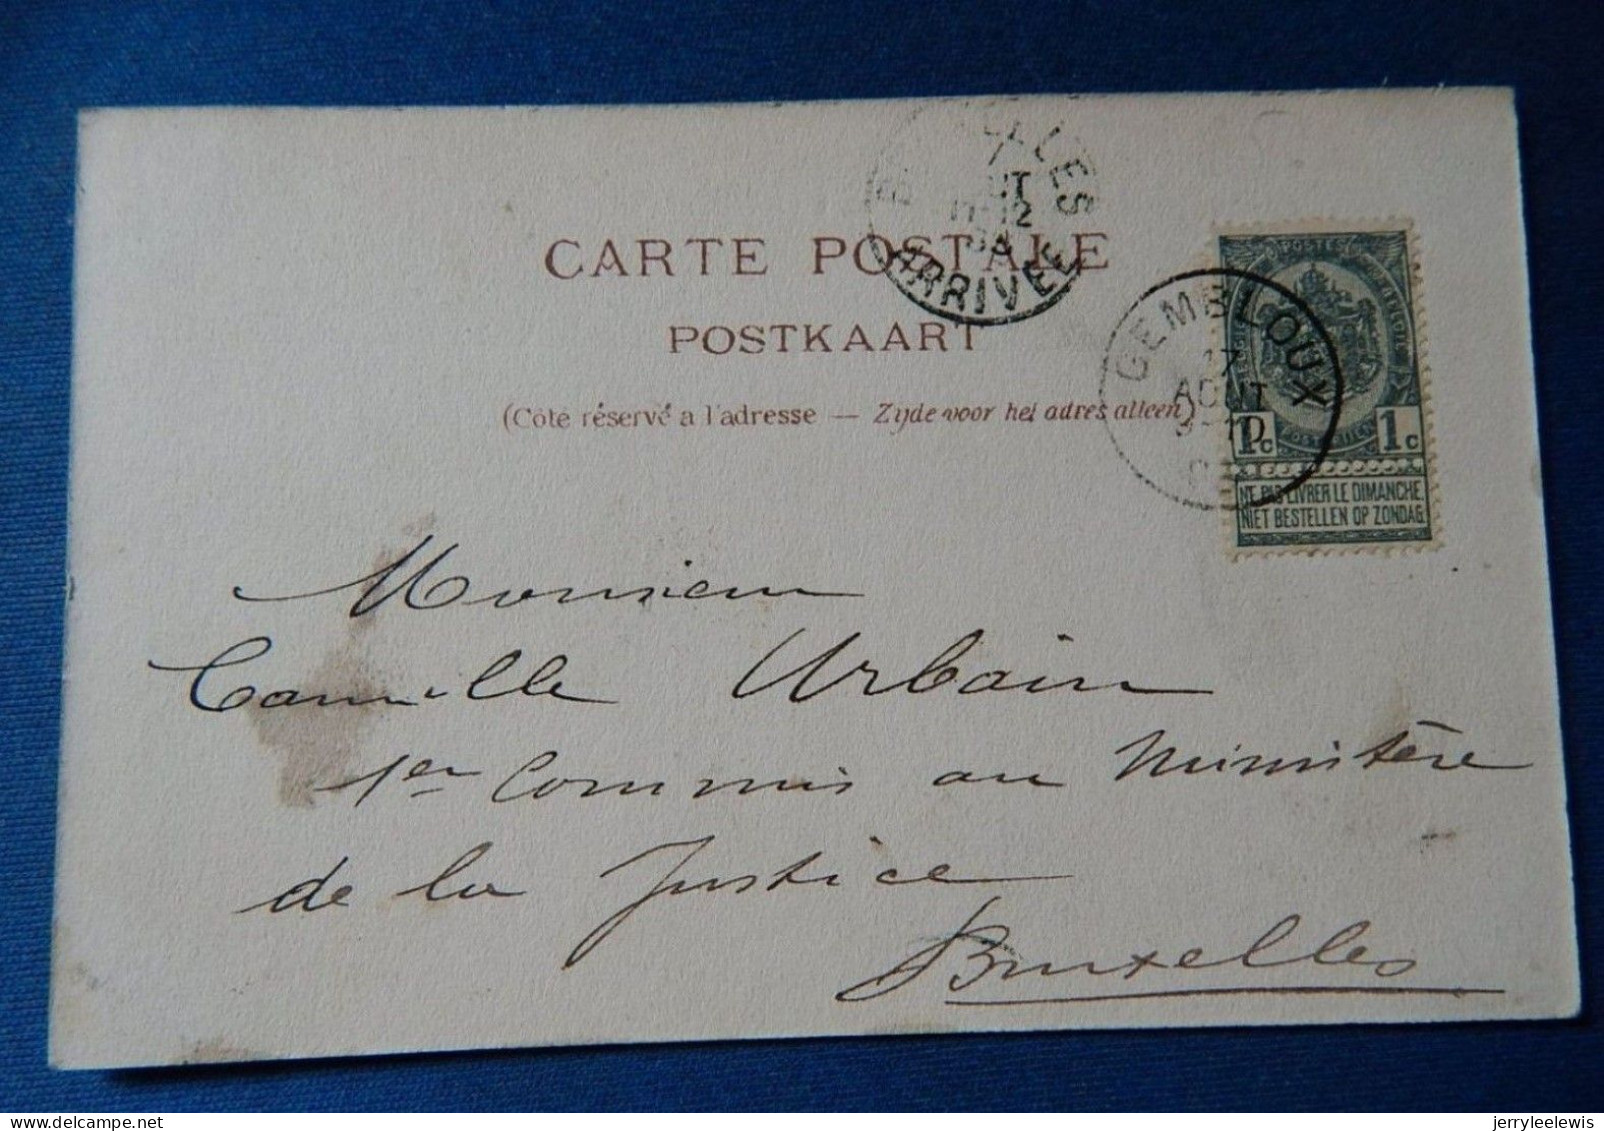 BRUXELLES
ARRIVEE
CARTE POSTALE
POSTKAART
(Côte réservé a l'adresse — Zijde voor het adres alleen)
GEMBLOUX
17
AOUT
POSTES
1c 1c
NE PAS LIVRER LE DIMANCHE
NIET BESTELLEN OP ZONDAG
Monsieur
Camille Urbain
1er Commis au Ministère
de la Justice
Bruxelles
jerryleelewis